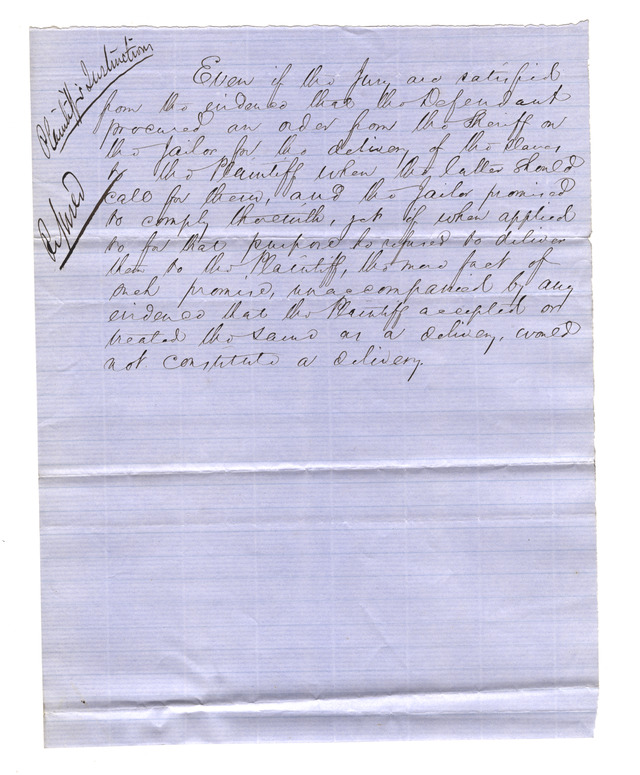 Plaintiff's Instructions
Refused
Even if the Jury are satisfied
from the evidence that the Defendant
procured an order from the Sheriff on
the Jailor for the delivery of the slaves
to the Plaintiff when the latter should
call for them, and the Jailor promised
to comply therewith, yet if when applied
to for that purpose he refused to deliver
them to the Plaintiff, the mere fact of
such promise, unaccompanied by any
evidence that the Plaintiff accepted or
treated the same as a delivery, would
not constitute a delivery.